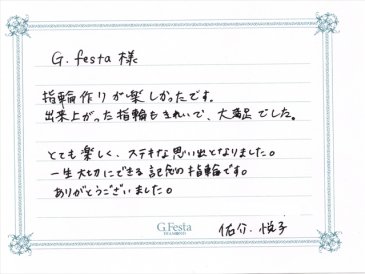 G. festa 様
指輪作りが楽しかったです。
出来上がった指輪もきれいで、大満足でした。
とても楽しく、ステキな思い出となりました。
一生大切にできる記念の指輪です。
ありがとうございました。
G.Festa
DIAMOND
佑介. 悦子